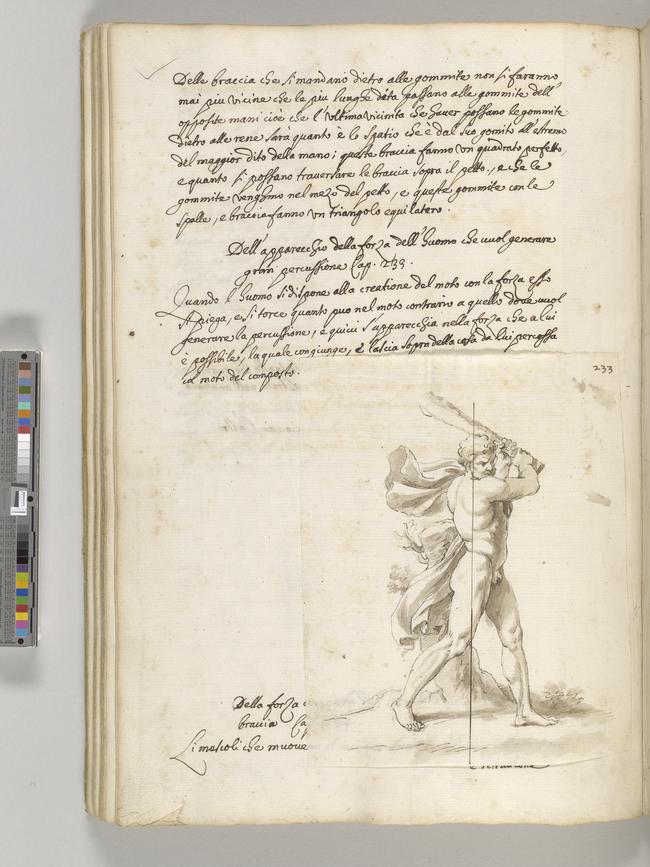 Delle braccia che si mandano dietro alle gommite non si faranno
mai piu vicine che le piu lunghe dita passano alle gommite dell'
opposite mani cioè che l'ultima vicinità che haver possano le gommite
dietro alle rene sarà quanto è lo spatio che è dal suo gomito all'estremo
del maggior dito della mano; queste braccia fanno un quadrato perfetto,
e quanto si possano traversare le braccia sopra il petto, e che le
gommite venghino nel mezo del petto, e queste gommite con le
spalle, e braccia fanno un triangolo equilatero.
Dell'apparecchio della forza dell'huomo che vuol generare
gran percussione Cap. 233.
Quando l'huomo si dispone alla creatione del moto con la forza esso
si piega, e si torce quanto puo nel moto contrario a quello dove vuol
generare la percussione, e quivi s'apparecchia nella forza che a lui
è possibile, la quale congiunge, e lascia sopra della cosa da lui percossa
col moto del composto.
233
Della forza
braccia
Li muscoli che muove